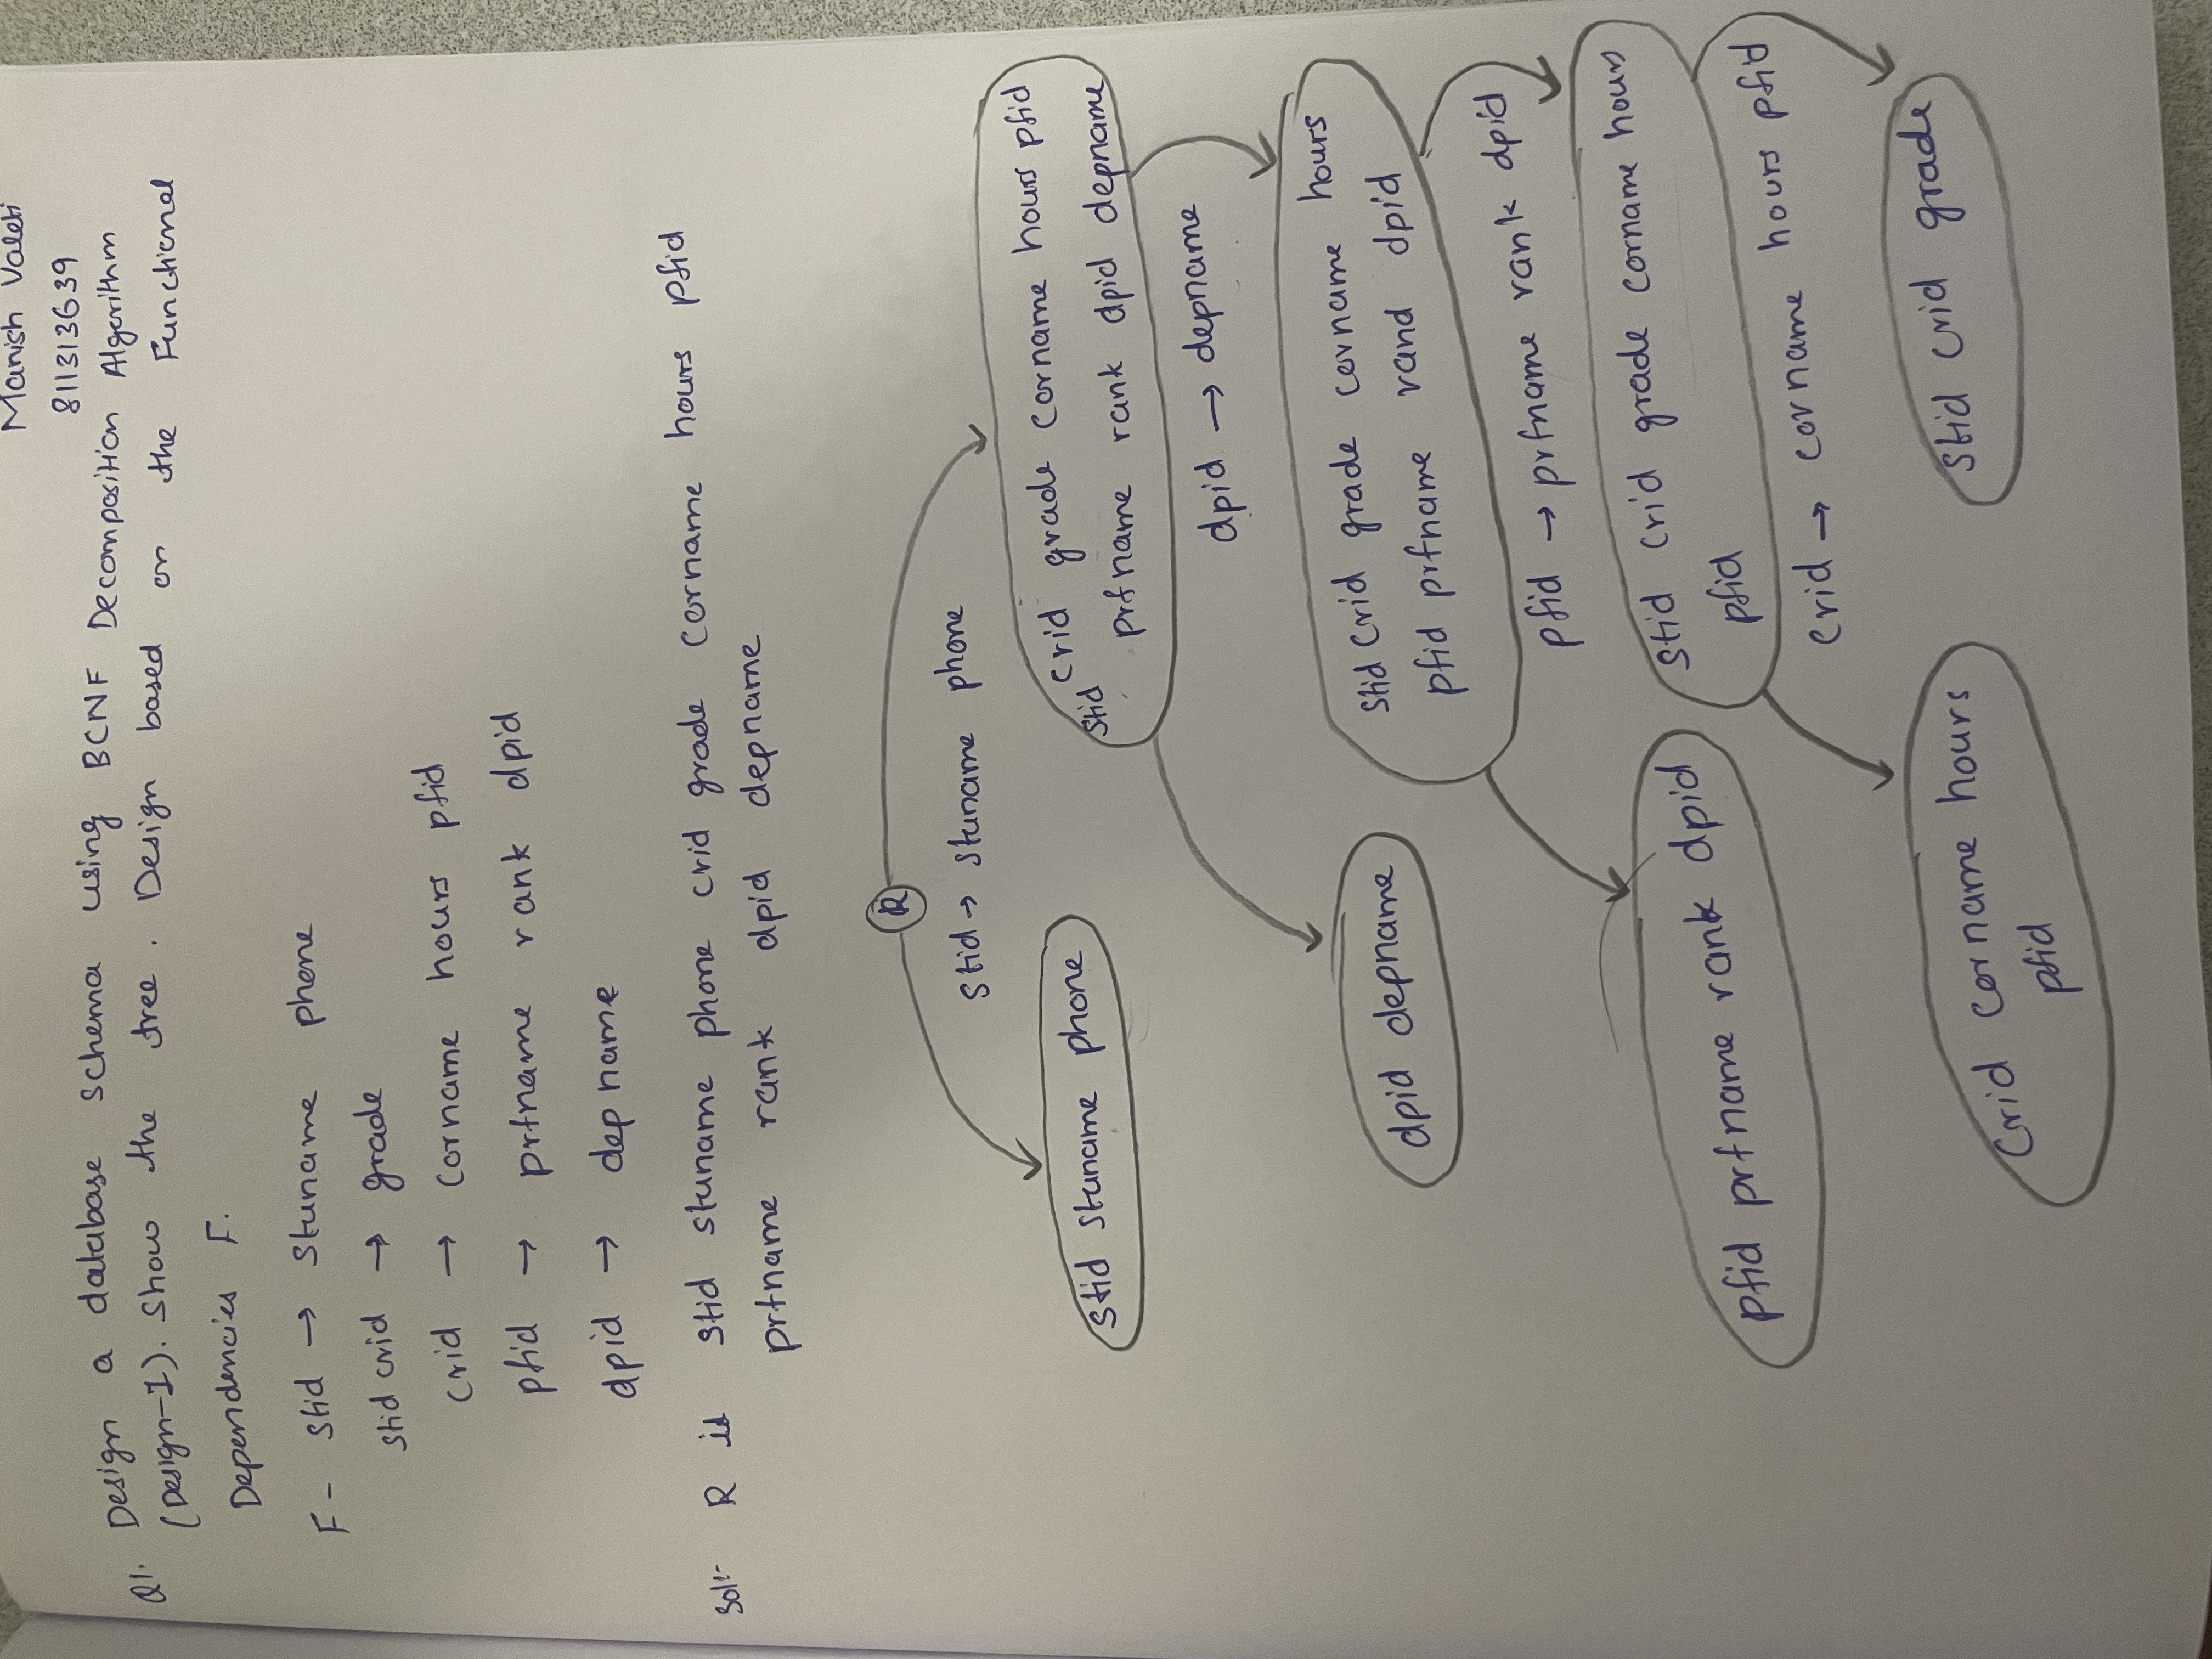 Manish Valeti
811313639
Q1. Design a database schema using BCNF Decomposition Algorithm
(Design-I). Show the tree. Design based on the Functional
Dependencies F.
F - stid → stuname phone
stid crid → grade
crid → corname hours pfid
pfid → prfname rank dpid
dpid → depname
Sol:- R is stid stuname phone crid grade corname hours pfid
prfname rank dpid depname
R
stid → stuname phone
stid stuname phone
stid crid grade corname hours pfid
prfname rank dpid depname
dpid → depname
dpid depname
stid crid grade corname hours
pfid prfname rand dpid
pfid → prfname rank dpid
pfid prfname rank dpid
stid crid grade corname hours
pfid
crid → corname hours pfid
crid corname hours
pfid
stid crid grade